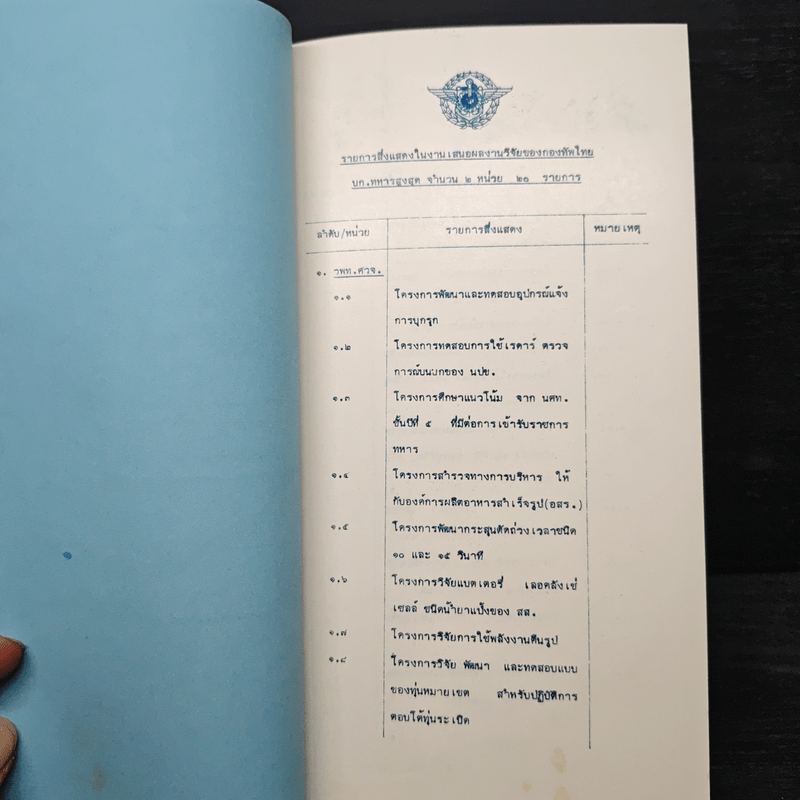 รายการสิ่งแสดงในงานเสนอผลงานวิจัยของกองทัพไทย
บก.ทหารสูงสุด จำนวน ๒ หน่วย ๒๐ รายการ
ลำดับ/หน่วย รายการสิ่งแสดง หมายเหตุ
๑. วพท.ศวจ.
๑.๑ โครงการพัฒนาและทดสอบอุปกรณ์แจ้ง
การบุกรุก
๑.๒ โครงการทดสอบการใช้เรดาร์ ตรวจ
การณ์บนบกของ นปข.
๑.๓ โครงการศึกษาแนวโน้ม จาก นศท.
ชั้นปีที่ ๕ ที่มีต่อการเข้ารับราชการ
ทหาร
๑.๔ โครงการสำรวจทางการบริหาร ให้
กับองค์การผลิตอาหารสำเร็จรูป(อสร.)
๑.๕ โครงการพัฒนากระสุนตัดถ่วงเวลาชนิด
๑๐ และ ๑๕ วินาที
๑.๖ โครงการวิจัยแบตเตอรี่ เลอคลังเช่
เซลล์ ชนิดน้ำยาแป้งของ สส.
๑.๗ โครงการวิจัยการใช้พลังงานคืนรูป
๑.๘ โครงการวิจัย พัฒนา และทดสอบแบบ
ของทุ่นหมายเขต สำหรับปฏิบัติการ
ตอบโต้ทุ่นระเบิด